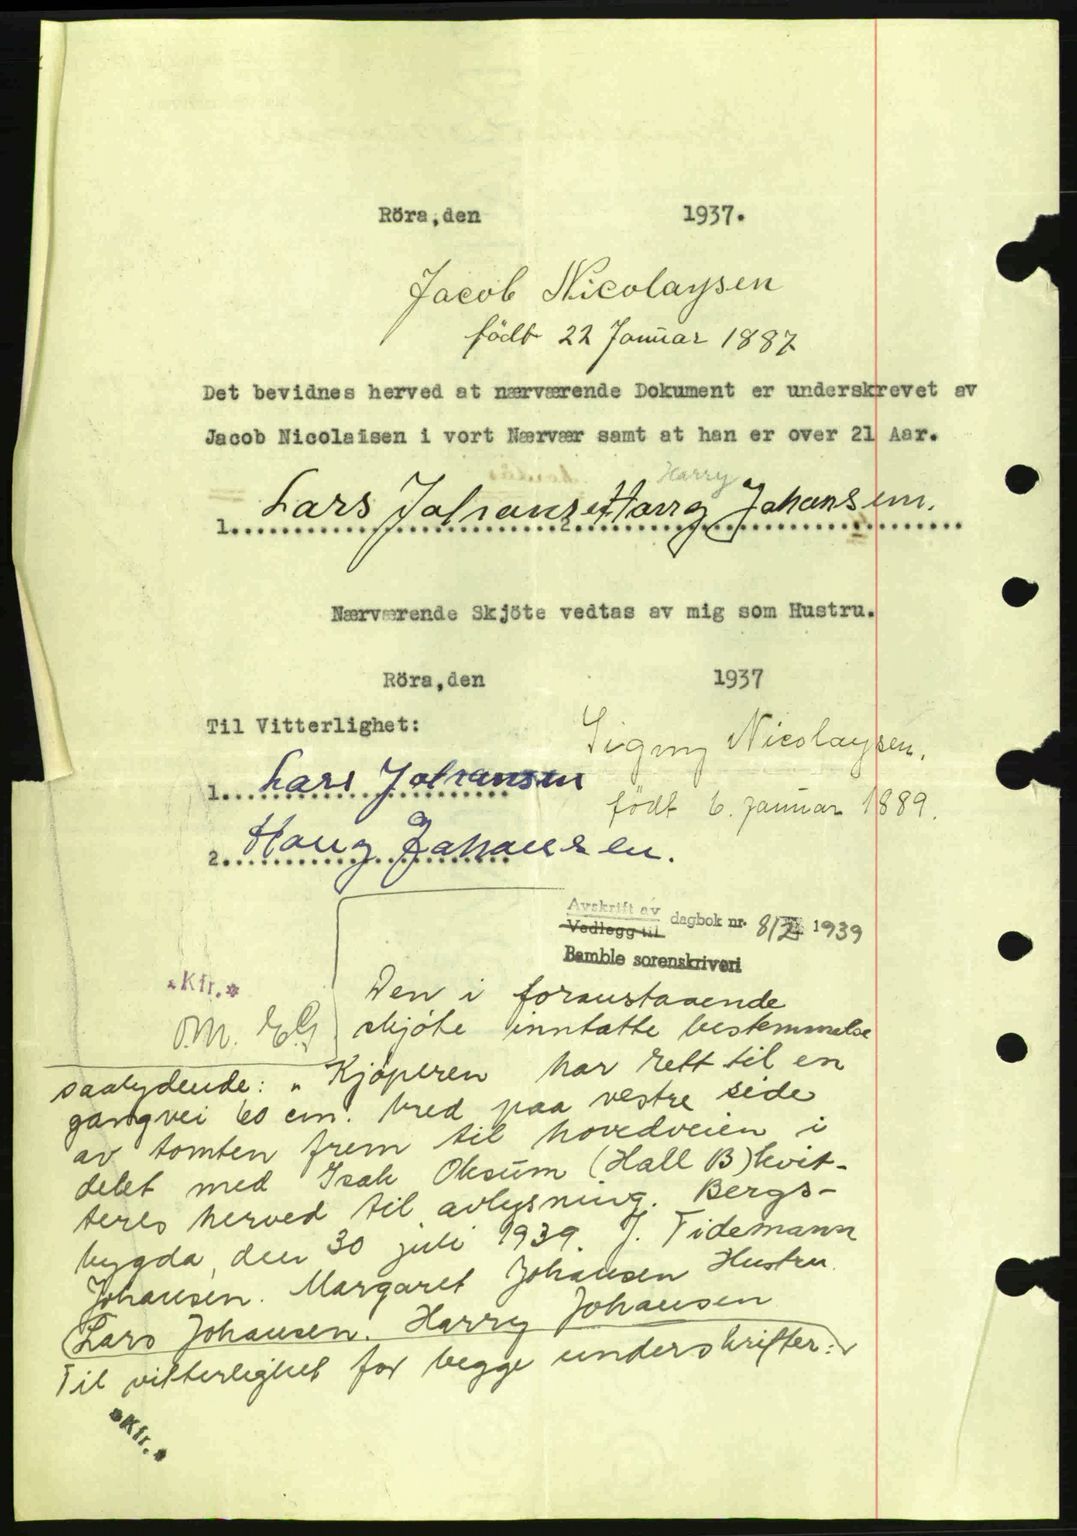 Röra,den 1937.
Jacob Nicolaysen
födt 22 Januar 1887
Det bevidnes herved at nærværende Dokument er underskrevet av
Jacob Nicolaisen i vort Nærvær samt at han er over 21 Aar.
Harry
1. Lars Johansen 2. Harry Johansen.
Nærværende Skjöte vedtas av mig som Hustru.
Röra,den 1937
Til Vitterlighet:
Signy Nicolaysen.
1. Lars Johansen
födt 6. januar 1889.
2. Harry Johansen.
Avskrift av
Vedlegg til dagbok nr. 1939
Bamble sorenskriveri
*Kfr.*
Den i foranstaaende
skjöte inntatte bestemmelse
saalydende: „ Kjöperen har rett til en
gangvei 60 cm. bred paa vestre side
av tomten frem til hovedveien i
delet med Isak Oksum (Hall B) kvit-
teres herved til avlysning. Bergs-
bygda, den 30 juli 1939. J. Tidemann
Johansen. Margaret Johansen Hustru.
Lars Johansen. Harry Johansen
Til vitterlighet for begge underskrifter:
*Kfr.*